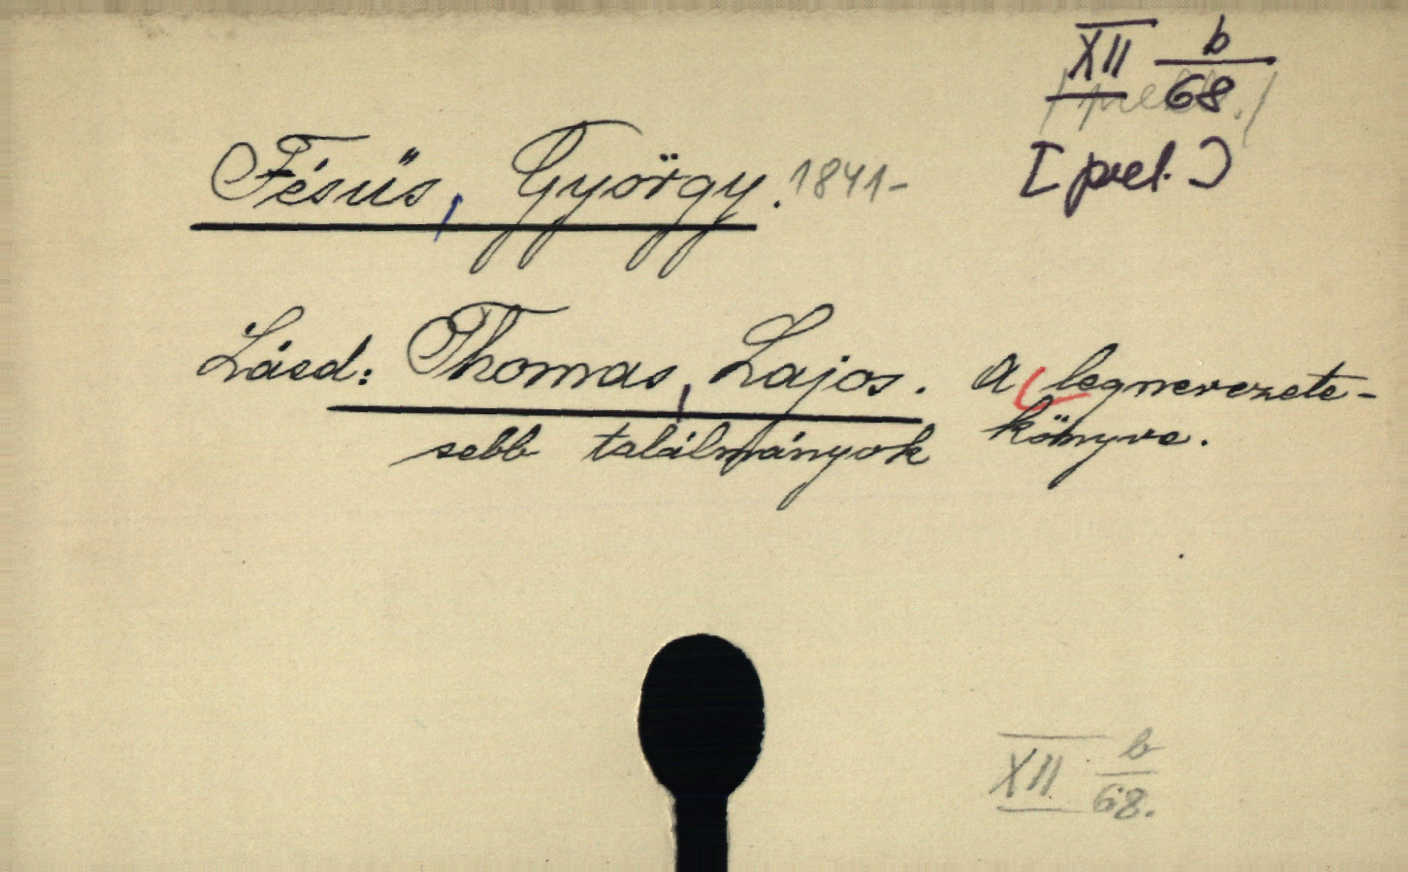 XII b/68
[prel.]
Fésüs, György. 1841-
Lásd: Thomas, Lajos. A legnevezete-
sebb találmányok könyve.
XII b/68.